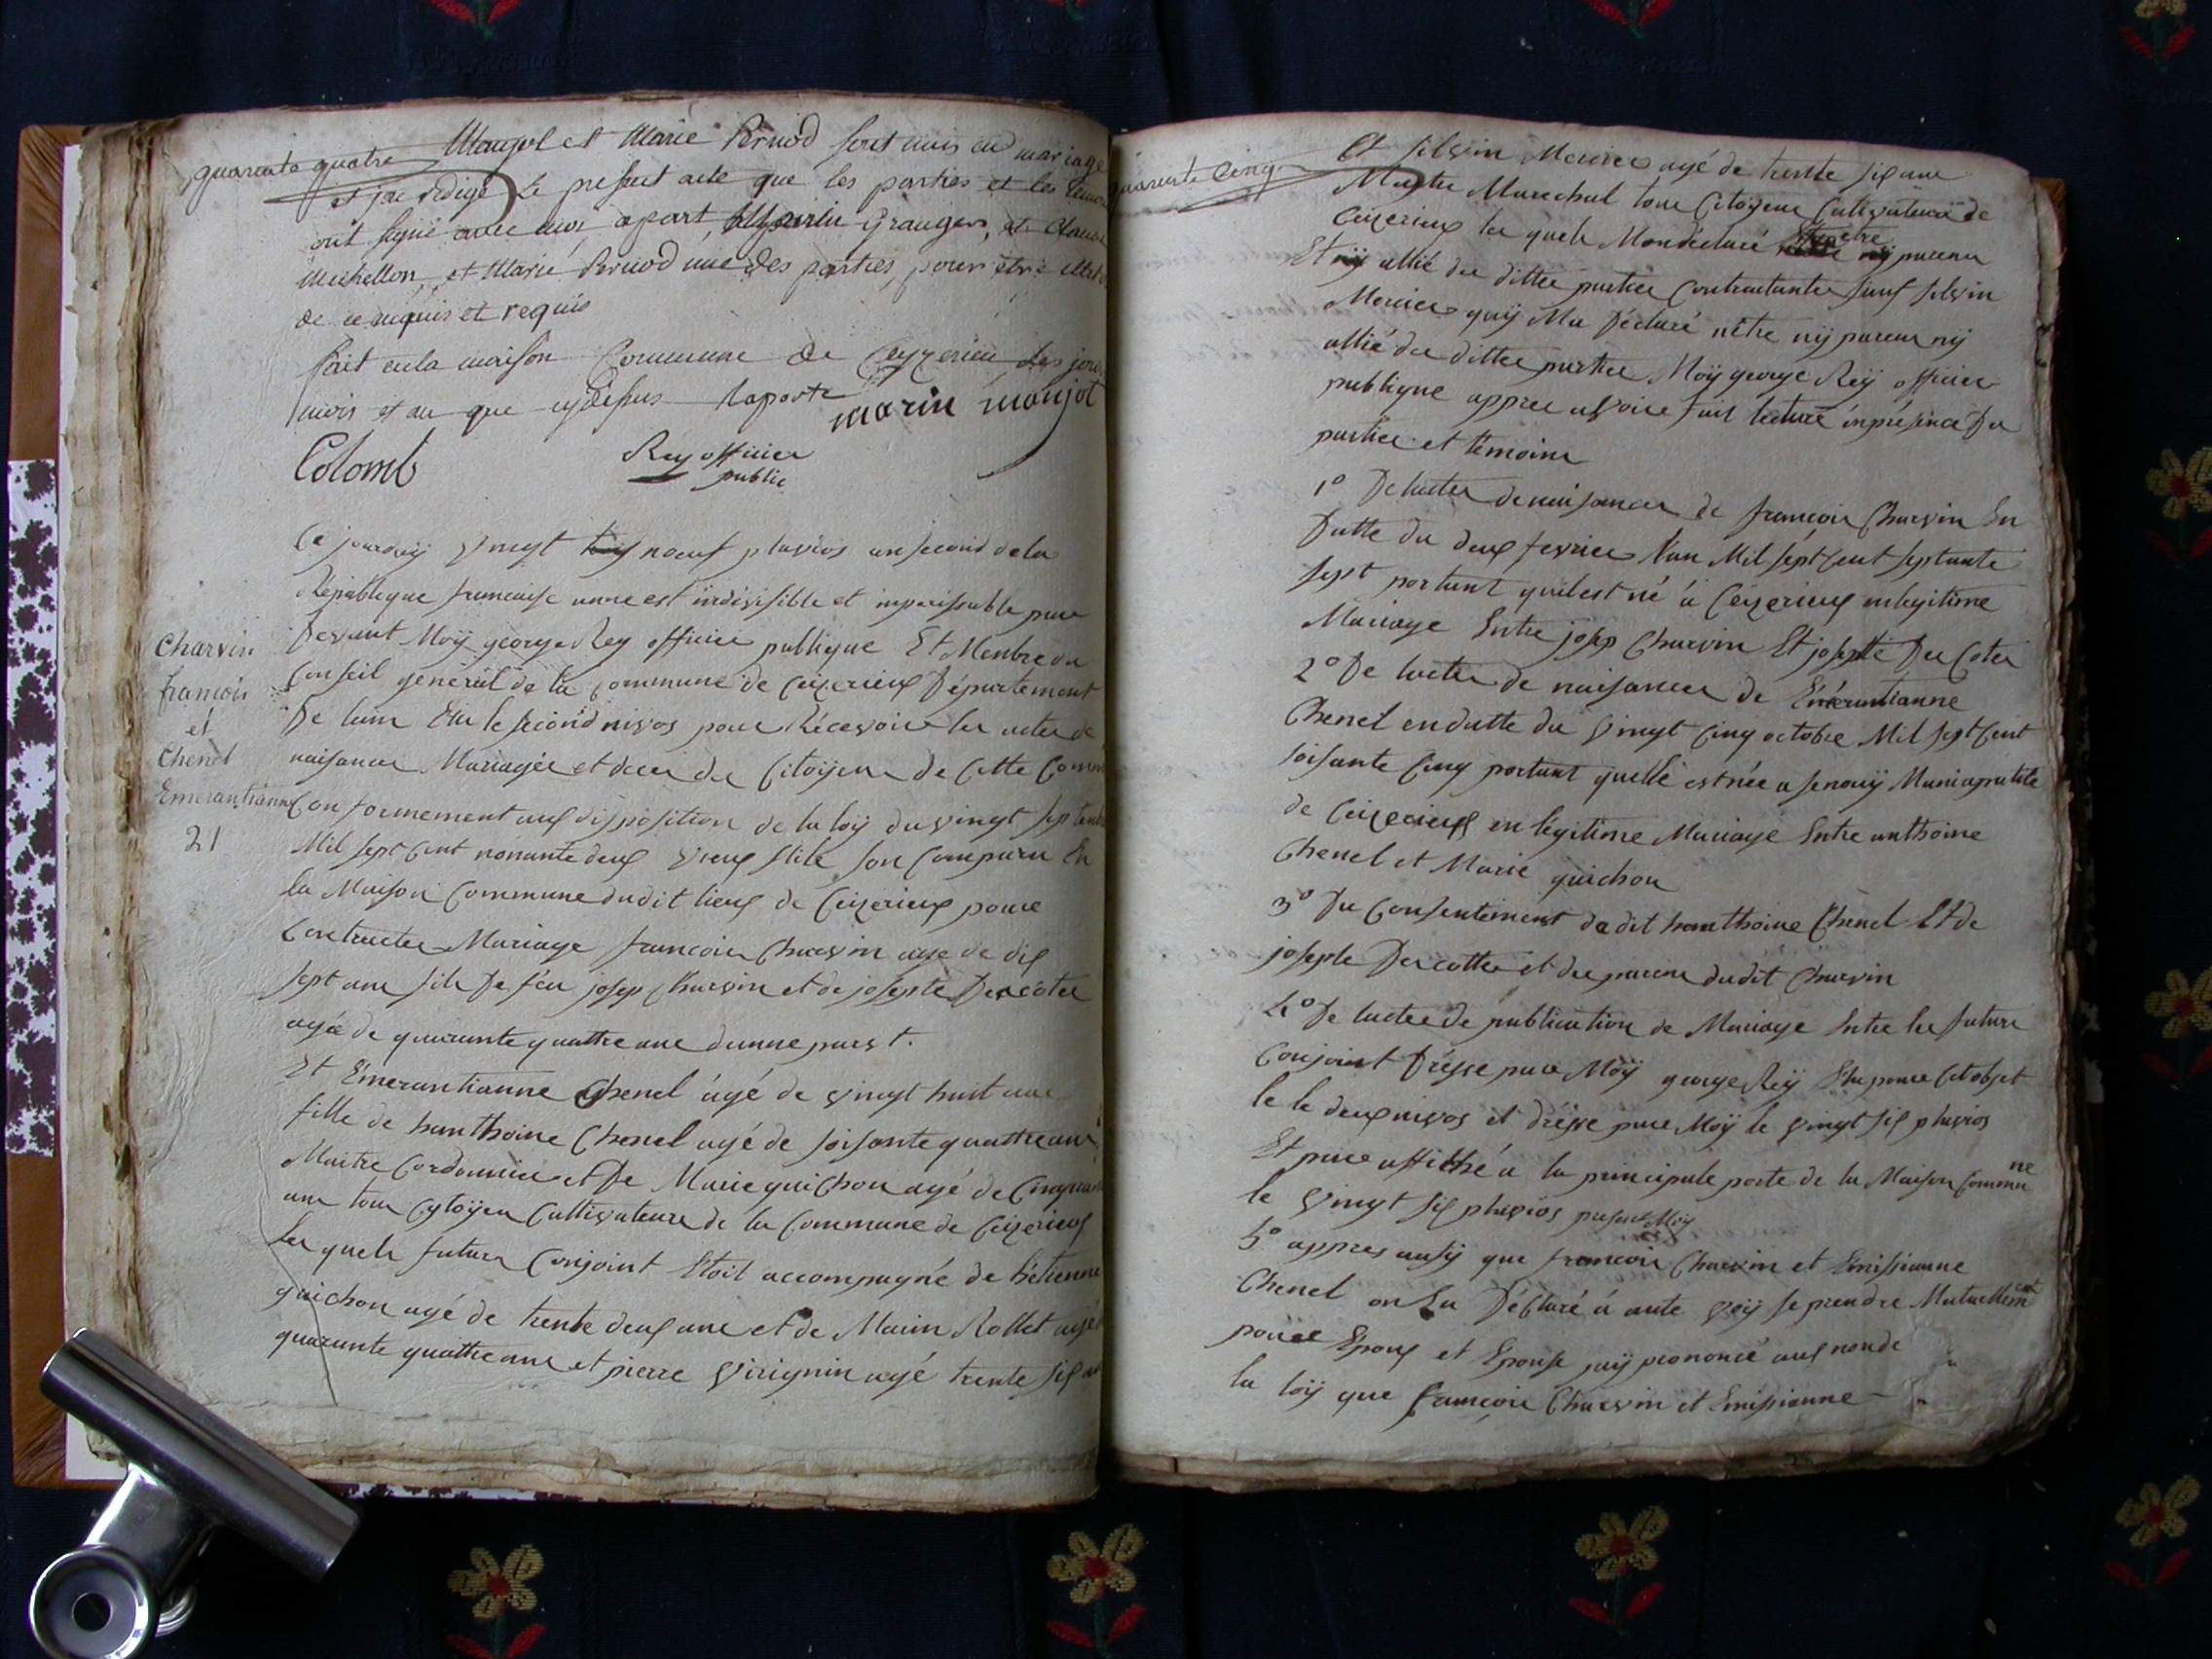 quarante quatre
Maujol et Marie Pernod sont unis en mariage
et jai redigé Le present acte que les parties et les temoins
ont signé avec moi apart, Granger, et Claude
Michellon, et Marie Pernod une des parties, pour être
de ce requis et requis
fait en la maison Commune de Ceyzerieu les jour
mois et an que cydessus Laporte
marin maujol
Colomb
Rey officier
public
Ce jourduÿ vingt noeuf pluvios an second de la
République francaise unne est indivisible et imperissable pare
Devant Moÿ george Rey officier publique Et Menbre du
Conseil général de la Commune de Ceizerieux Département
De lain Elu le second nivos pour Récevoir les actes de
naisances Mariages et deces des Citoÿens de Cette Comm
Conformement aux disposition de la loÿ du vingt septembre
Mil sept Cent nonante deux vieux stile son Comparu En
la Maison Commune dudit lieux de Ceizerieux pour
Contracter Mariage francois Charvin age de dix
sept ans fils De feu josep Charvin et de josepte Descotes
agée de quarante quattre ans dunne part.
Et Émerantianne Chenel ágé de vingt huit ans
fille de hanthoine Chenel agé de soisante quattre ans
Maitre Cordonnier et De Marie guichon agé de Cinquan
ans tous Cytoÿen Cultivateurs de la Commune de Ceizerieux
Les quels futurs Conjoint Etoit accompagné de hétienne
guichon agé de trente deux ans et de Marin Rollet agé
quarante quattre ans et pierre virignin agé trente six an
Charvin
francois
et
Chenel
Emerantianne
21
quarante Cinq
Et silvin Mercier agé de trente six ans
Maitre Marechal tous Citoÿens Cultivateurs de
Ceizerieux les quels Mon déclaré netre nÿ parens
Et nÿ allié des dittes parties Contractantes sauf silvin
Mercier quÿ Ma Déclaré nêtre nÿ parens nÿ
allié des dittes parties Moÿ george Reÿ officier
publique appres avoir fait lecture en présence Des
parties et témoins
1° De lactes de naisances de francois Charvin En
Datte du deux fevrier lan Mil sept Cent septante
sept portant quil est né á Ceizerieux en légitime
Mariage Entre josep Charvin Et josepte Des Cotes
2° De lactes de naisances de Emérantianne
Chenel en datte du vingt Cinq octobre Mil sept Cent
soisante Cinq portant quelle est née a senoüÿ Municapalité
de Ceizerieux en légitime Mariage Entre anthoine
Chenel et Marie guichon
3° Du Consentement dudit hanthoine Chenel Et de
josepte Descottes et des parens dudit Charvin
4° De lactes de publication de Mariage Entre les futurs
Conjoint Drésse pare Moÿ george Reÿ Elu pour Cet objet
le le deux nivos et drésse pare Moÿ le vingt six pluvios
Et pare affiché a la principale porte de la Maison Commune
le vingt six pluvios present Moÿ
5° appres ausÿ que francois Charvin et Emissianne
Chenel on Déclaré á aute voÿ se prendre Mutuellement
pour Epoux et Epouse jaÿ prononcé aux non de
la loÿ que francois Charvin et Emissianne